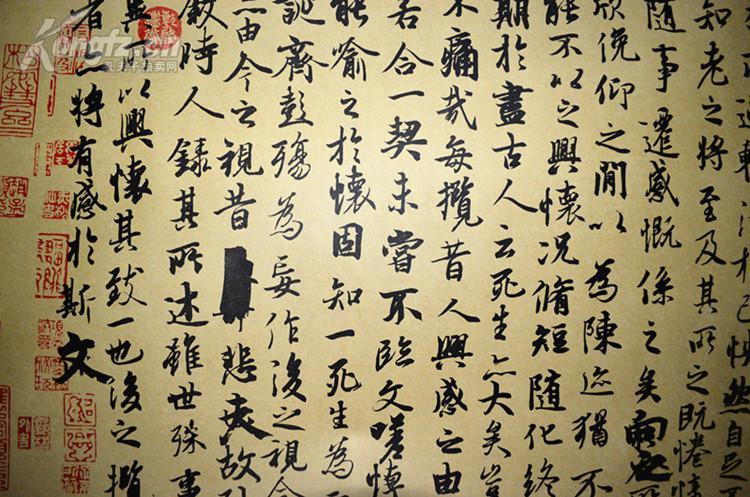 於己怏然自足不
知老之將至及其所之既惓情
隨事遷感慨係之矣向之所
欣俛仰之閒以為陳迹猶不
能不以之興懷況脩短隨化終
期於盡古人云死生亦大矣豈
不痛哉每攬昔人興感之由
若合一契未嘗不臨文嗟悼
能喻之於懷固知一死生為
誕齊彭殤為妄作後之視今
亦由今之視昔悲夫故列
敘時人錄其所述雖世殊事
異所以興懷其致一也後之攬
者亦將有感於斯文
孔夫子拍卖网